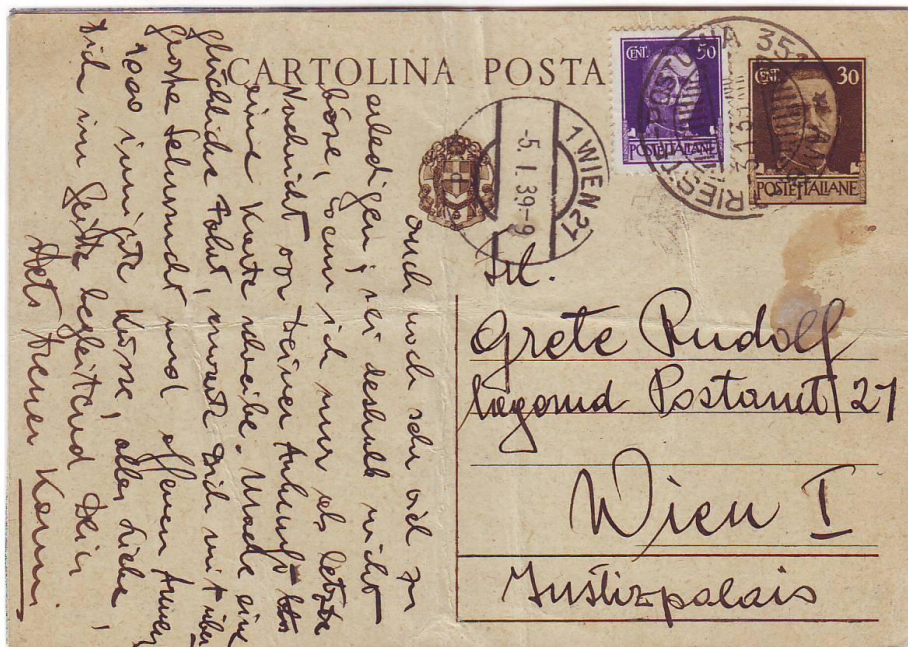 CARTOLINA POSTA
CENT. 50
POSTE ITALIANE
CENT. 30
POSTE ITALIANE
POSTUMIA 351 TRIESTE
1 WIEN 27
-5. I. 39-9
Frl.
Grete Rudolf
lagernd Postamt 27
Wien I
Justizpalais
auch noch sehr viel zu
erledigen, sei deshalb nicht
böse, wenn ich nur als letzte
Nachricht vor Deiner Ankunft
eine Karte schreibe. Mache eine
glückliche Fahrt, erwarte Dich mit
große Sehnsucht und offenen Armen
1000 innigste Küsse, alles Liebe,
Dich im Geiste begleitend Dein
stets treuer